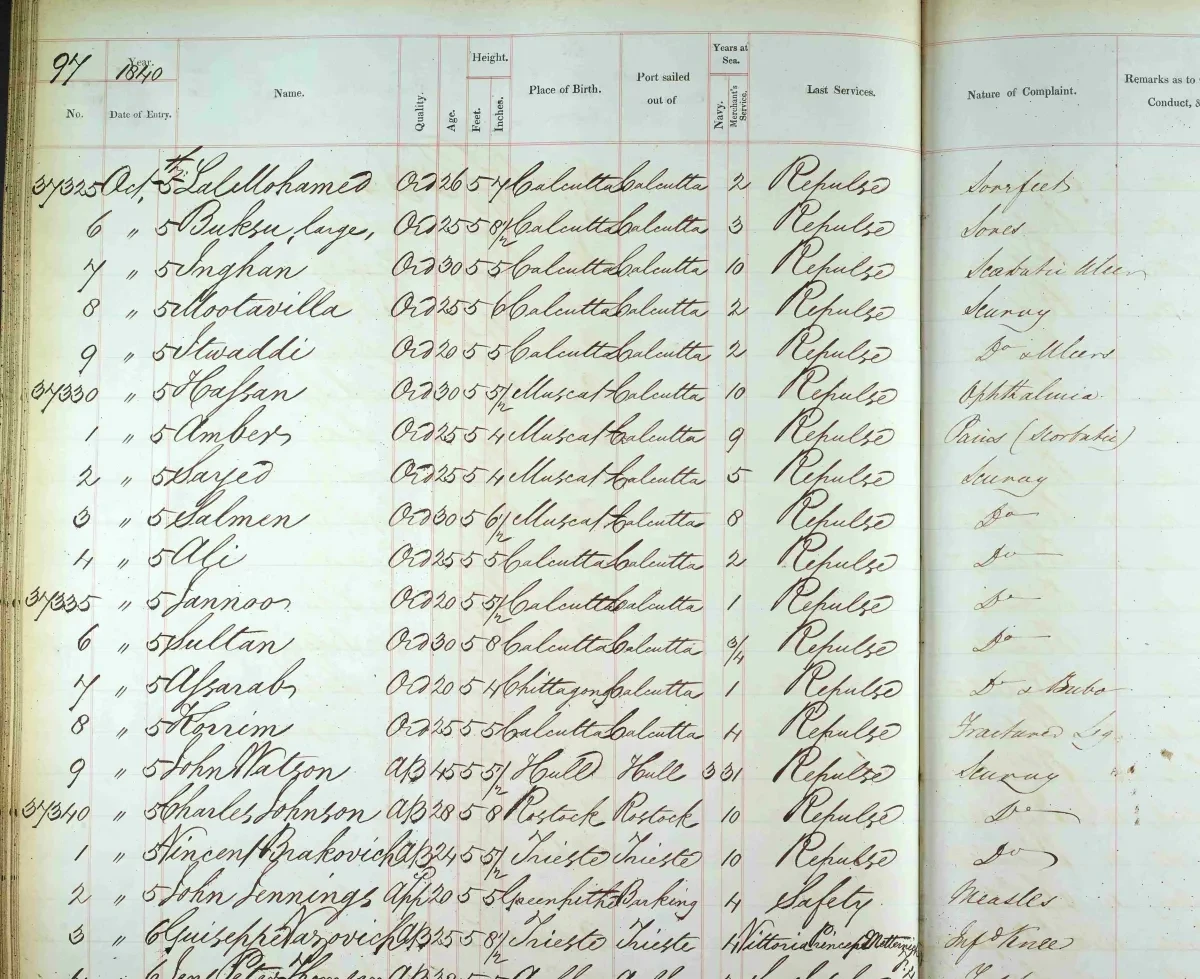 97 Year. 1840 Height. Years at Sea.
No. Date of Entry. Name. Quality. Age. Feet. Inches. Place of Birth. Port sailed out of Navy. Merchant's Service. Last Services. Nature of Complaint. Remarks as to Conduct, &
37325 Oct. 5th Lal Mohamed Ord 26 5 7 Calcutta Calcutta 2 Repulse Sorefeet
6 " 5 Buksu, large, Ord 25 5 8½ Calcutta Calcutta 3 Repulse Sores
7 " 5 Inghan Ord 30 5 5 Calcutta Calcutta 10 Repulse Scorbutic Ulcer
8 " 5 Mootavilla Ord 25 5 6 Calcutta Calcutta 2 Repulse Scurvy
9 " 5 Itwaddi Ord 20 5 5 Calcutta Calcutta 2 Repulse Do & Ulcers
37330 " 5 Hassan Ord 30 5 5½ Muscat Calcutta 10 Repulse Ophthalmia
1 " 5 Amber Ord 25 5 4 Muscat Calcutta 9 Repulse Pains (Scorbutic)
2 " 5 Sayed Ord 25 5 4 Muscat Calcutta 5 Repulse Scurvy
3 " 5 Salmen Ord 30 5 6½ Muscat Calcutta 8 Repulse Do
4 " 5 Ali Ord 25 5 5 Calcutta Calcutta 2 Repulse Do
37335 " 5 Jannoo Ord 20 5 5½ Calcutta Calcutta 1 Repulse Do
6 " 5 Sultan Ord 30 5 8 Calcutta Calcutta 3/4 Repulse Do
7 " 5 Assarab Ord 20 5 4 Chittagong Calcutta 1 Repulse Do & Bubo
8 " 5 Korrim Ord 25 5 5 Calcutta Calcutta 4 Repulse Fractured Leg
9 " 5 John Watson AB 45 5 5½ Hull Hull 3 31 Repulse Scurvy
37340 " 5 Charles Johnson AB 28 5 8 Rostock Rostock 10 Repulse Do
1 " 5 Vincent Brakovich AB 24 5 5½ Trieste Trieste 10 Repulse Do
2 " 5 John Jennings App 20 5 5 Greenhithe Barking 4 Safety Measles
3 " 6 Guiseppe Vazovich AB 25 5 8½ Trieste Trieste 4 Vittoria Princepe Metternich Infd Knee